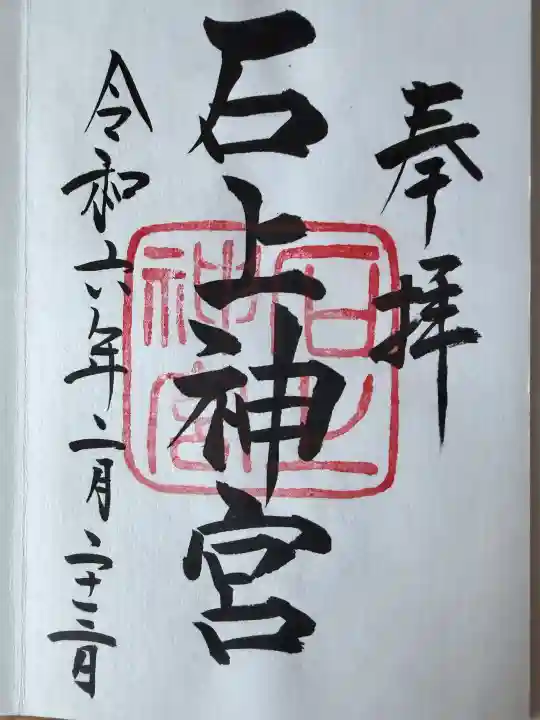 奉拝
石上神宮
石上神宮
令和六年二月二十三日